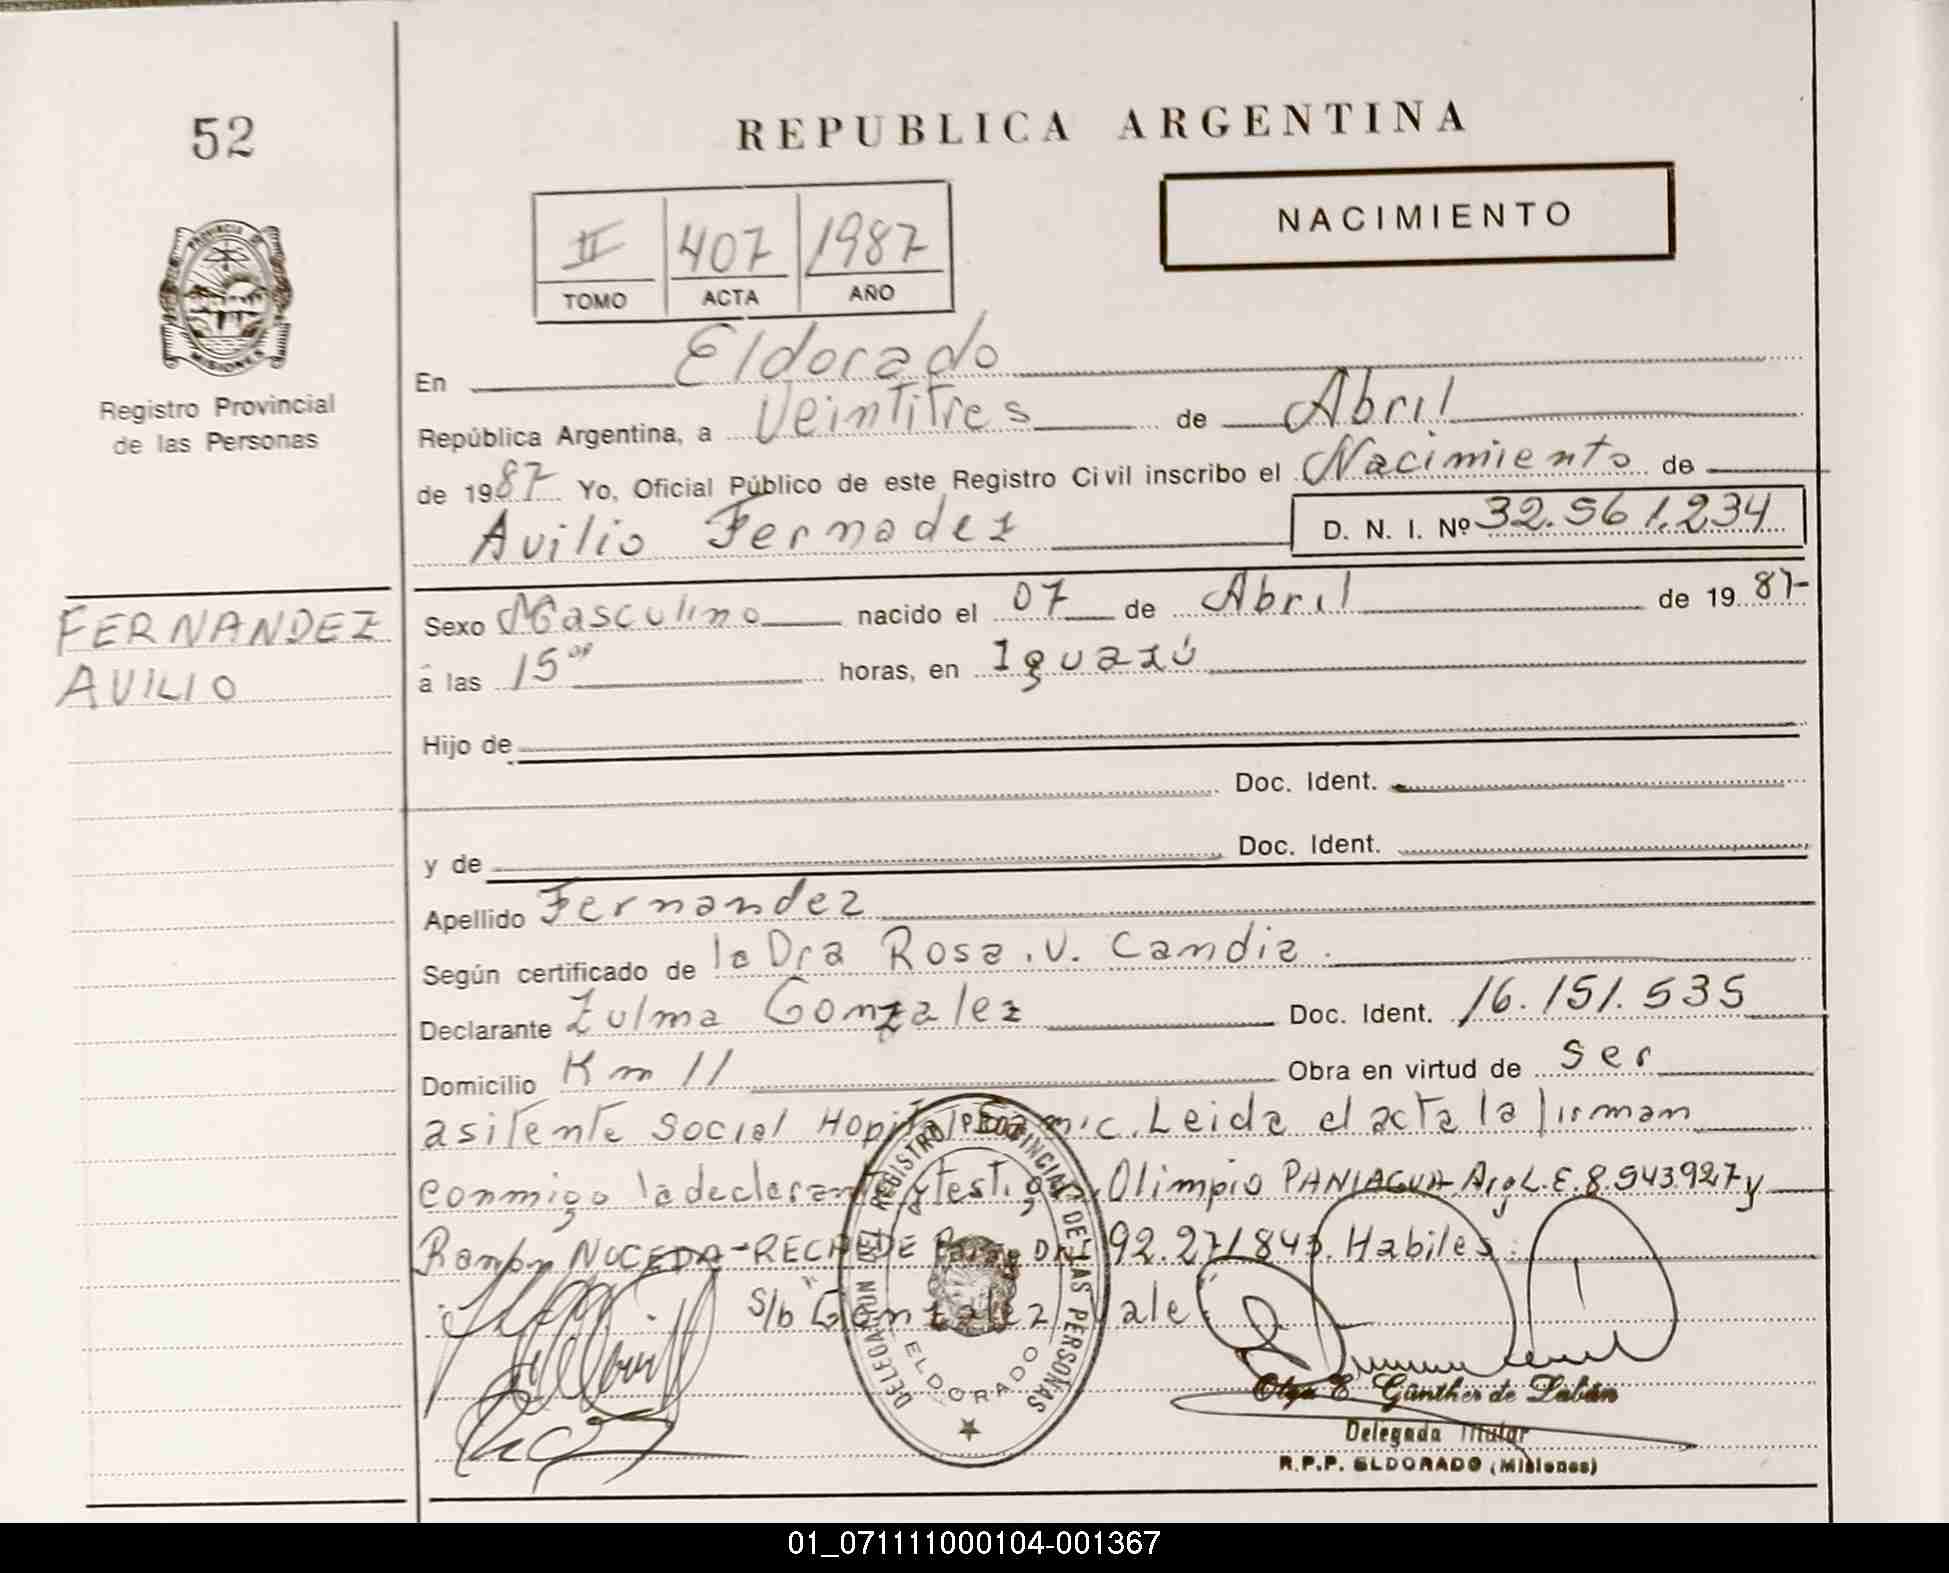 52
REPUBLICA ARGENTINA
NACIMIENTO
II 407 1987
TOMO ACTA AÑO
PROVINCIA DE
MISIONES
Registro Provincial
de las Personas
En Eldorado
República Argentina, a Veintitres de Abril
de 1987 Yo, Oficial Público de este Registro Civil inscribo el Nacimiento de
Avilio Fernadez D. N. I. Nº 32.561.234
FERNANDEZ
AVILIO
Sexo Masculino nacido el 07 de Abril de 1987-
a las 15 horas, en Iguazú
Hijo de
Doc. Ident.
y de Doc. Ident.
Apellido Fernandez
Según certificado de la Dra Rosa. V. Candia.
Declarante Zulma Gonzalez Doc. Ident. 16.151.535
Domicilio Km 11 Obra en virtud de ser
asitente Social Leida el acta la firman
conmigo la Olimpio PANIAGUA Arg L.E. 8.943927 y
Ramon NOCEDA-RECALDE 92.271843. Habiles.
S/b "Gonzalez" Vale
DELEGACION DEL REGISTRO PROVINCIAL DE LAS PERSONAS
ELDORADO
Olga E. Günther de Labán
Delegada Titular
R.P.P. ELDORADO (Misiones)
01_071111000104-001367